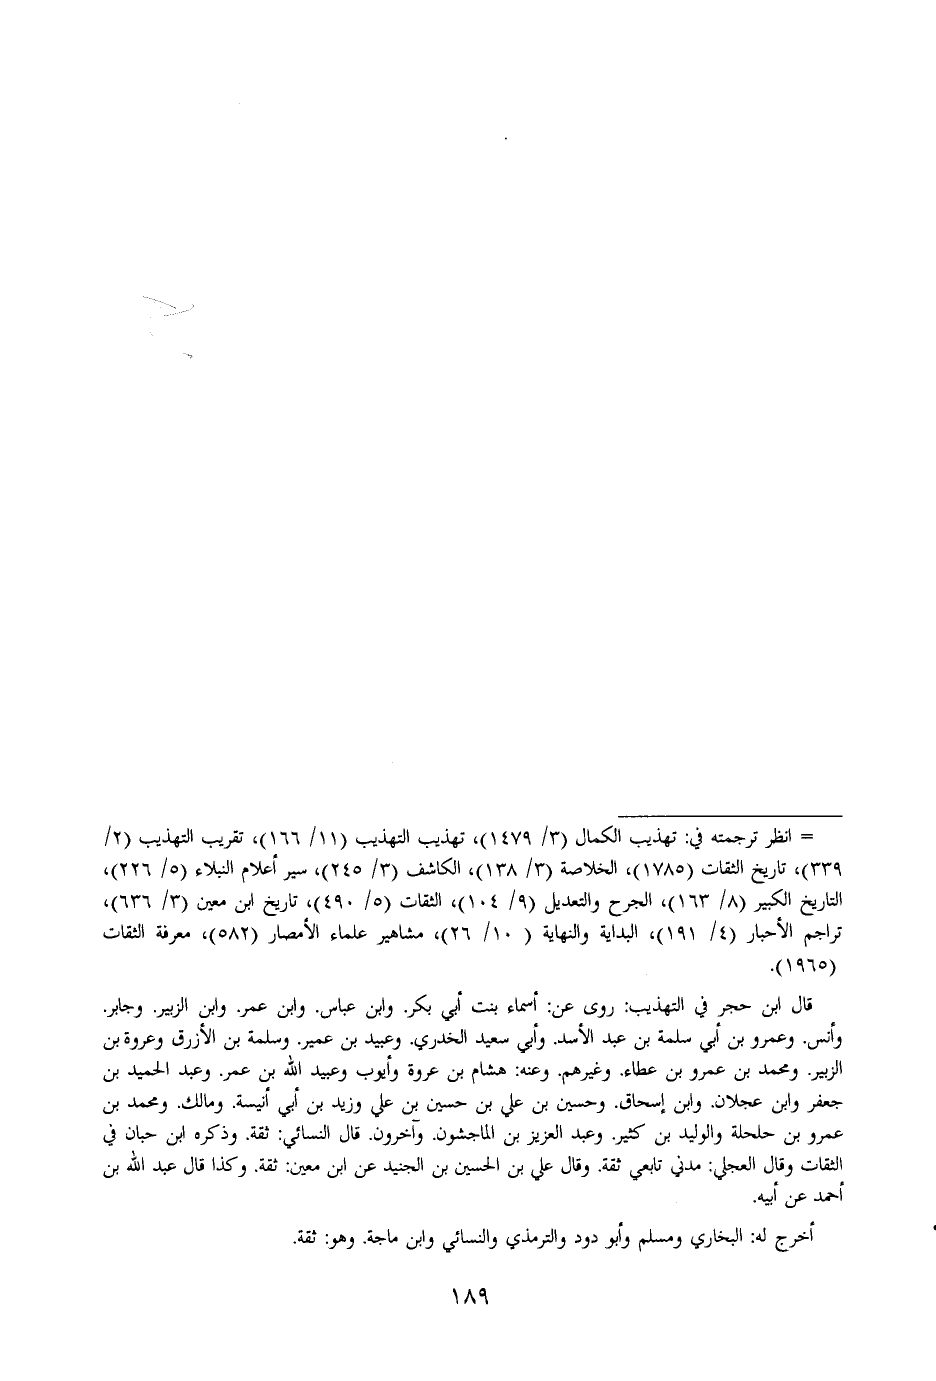 = انظر ترجمته في: تهذيب الكمال (٣/ ١٤٧٩)، تهذيب التهذيب (١١/ ١٦٦)، تقريب التهذيب (٢/
٣٣٩)، تاريخ الثقات (١٧٨٥)، الخلاصة (٣/ ١٣٨)، الكاشف (٣/ ٢٤٥)، سير أعلام النبلاء (٥/ ٢٢٦)،
التاريخ الكبير (٨/ ١٦٣)، الجرح والتعديل (٩/ ١٠٤)، الثقات (٥/ ٤٩٠)، تاريخ ابن معين (٣/ ٦٣٦)،
تراجم الأحبار (٤/ ١٩١)، البداية والنهاية ( ١٠/ ٢٦)، مشاهير علماء الأمصار (٥٨٢)، معرفة الثقات
(١٩٦٥).
قال ابن حجر في التهذيب: روى عن: أسماء بنت أبي بكر. وابن عباس. وابن عمر. وابن الزبير. وجابر.
وأنس. وعمرو بن أبي سلمة بن عبد الأسد. وأبي سعيد الخدري. وعبيد بن عمير. وسلمة بن الأزرق وعروة بن
الزبير. ومحمد بن عمرو بن عطاء. وغيرهم. وعنه: هشام بن عروة وأيوب وعبيد الله بن عمر. وعبد الحميد بن
جعفر وابن عجلان. وابن إسحاق. وحسين بن علي بن حسين بن علي وزيد بن أبي أنيسة. ومالك. ومحمد بن
عمرو بن حلحلة والوليد بن كثير. وعبد العزيز بن الماجشون. وآخرون. قال النسائي: ثقة. وذكره ابن حبان في
الثقات وقال العجلي: مدني تابعي ثقة. وقال علي بن الحسين بن الجنيد عن ابن معين: ثقة. وكذا قال عبد الله بن
أحمد عن أبيه.
أخرج له: البخاري ومسلم وأبو دود والترمذي والنسائي وابن ماجة. وهو: ثقة.
١٨٩